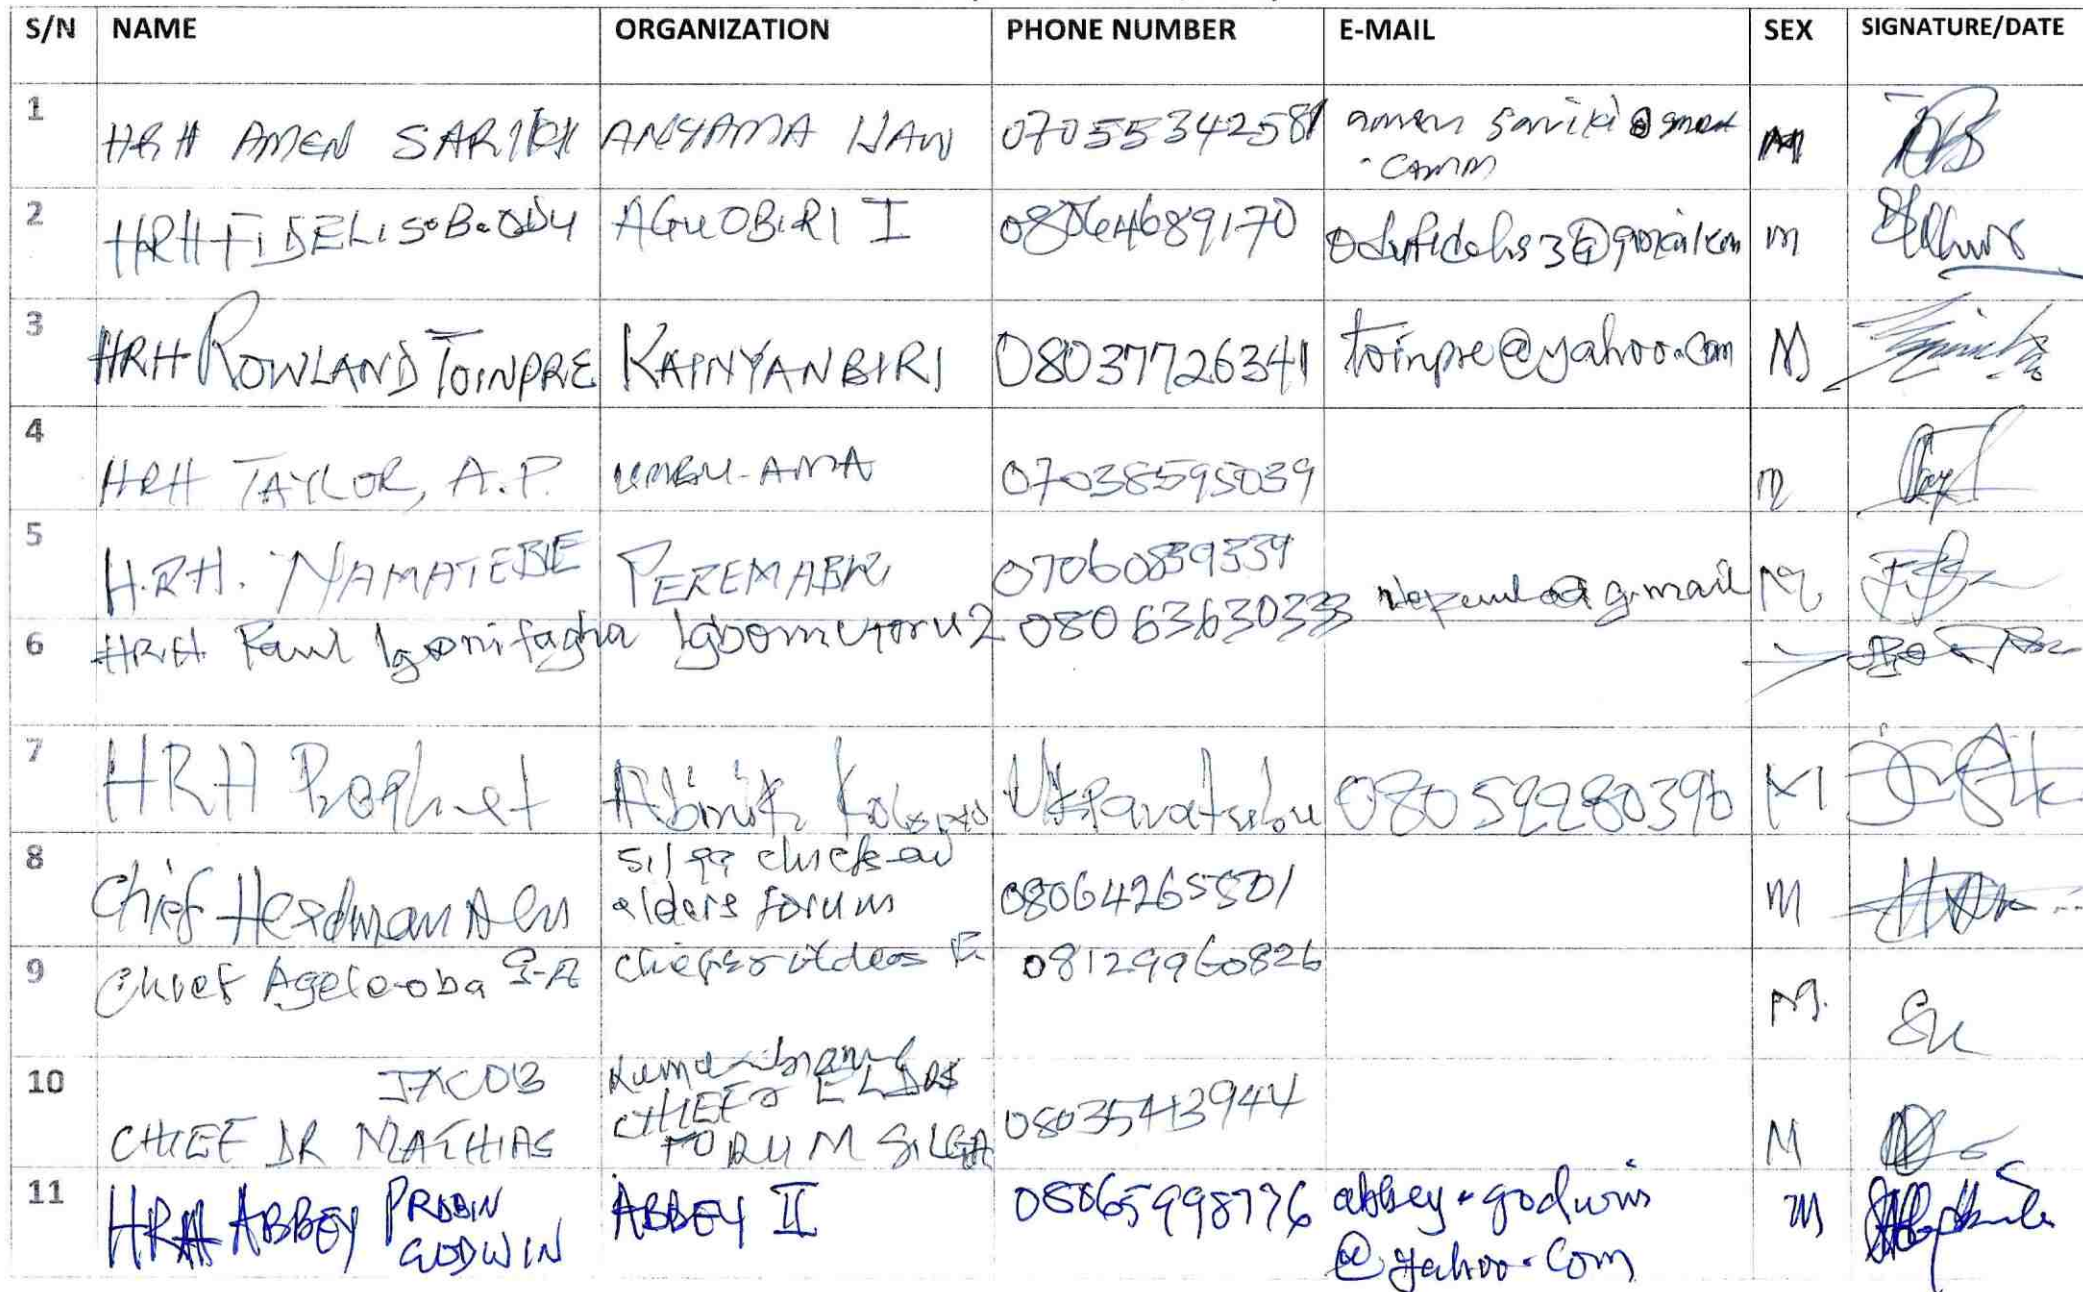 S/N NAME ORGANIZATION PHONE NUMBER E-MAIL SEX SIGNATURE/DATE
1 HRH AMEN SARIKI ANYAMA IJAW 07055342581 amen sariki@ M
2 HRH FIDELIS O.B. ODU AGUOBIRI I 08064689170 odufidelis3@gmail.com m
3 HRH ROWLAND TOINPRE KAINYANBIRI 08037726341 toinpre@yahoo.com M
4 HRH TAYLOR, A.P. UMBU-AMA 07038595039 m
5 H.R.H. NAMATEBE PEREMABIRI 07060839339 M
6 HRH Paul Igonifagha Igbomotoru 2 08063630333 @gmail
7 HRH Prophet 08059280390 M
8 Chief Herdman chiefs
elders forum 08064265801 M
9 Chief Agele-oba 08129960826 M.
10 JACOB
CHIEF DR MATHIAS CHIEFS ELDERS
FORUM SILGA 08035413944 M
11 HRH ABBEY GODWIN ABBEY II 08065998776 abbey.godwin
@yahoo.com m